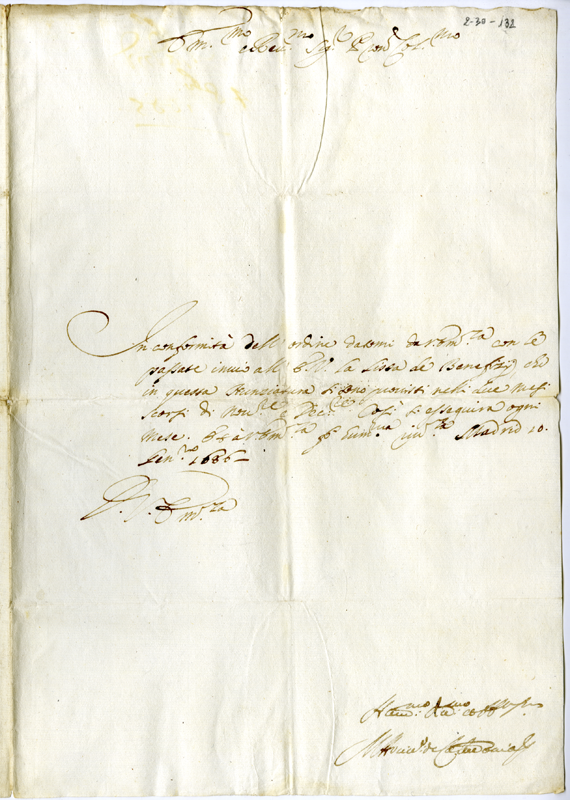 2-30-132
Em.mo e Rev.mo Sig.r P.ron Col.mo
In conformità dell'ordine datomi da V. Em.za con le
passate invio all' E.V. la lista de Benefizij che
in questa Nunziatura si sono provisti nelli due mesi
scorsi di Nov.re e Dec.re Così si esseguirà ogni
mese. Et à V. Em.za fo hum.
Madrid 10.
Gen.ro 1686
D. V. Em.za
Hum.mo